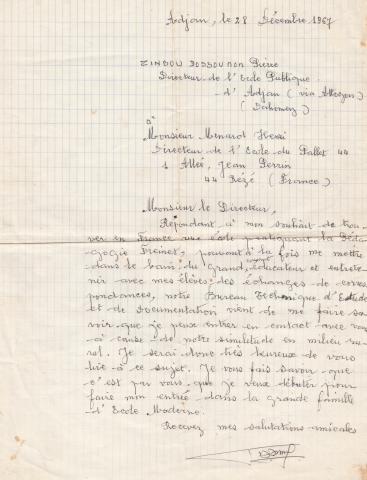 Adjan, le 28 Décembre 1967
ZINDOU DOSSOUMON Pierre
Directeur de l'Ecole Publique
d'Adjan (via Attogon)
(Dahomey)
à
Monsieur Menard Henri
Directeur de l'Ecole du Pallet 44
1 Allée, Jean Perrin
44 Rézé (France)
Monsieur le Directeur,
Répondant à mon souhait de trou-
ver en France une école pratiquant la Péda-
gogie Freinet, pouvant à la fois me mettre
dans le bain du grand éducateur et entrete-
nir avec mes élèves des échanges de corres
pondances, notre Bureau Technique d'Etude
et de Documentation vient de me faire sa-
voir que je peux entrer en contact avec vous
à cause de notre similitude en milieu ru-
ral. Je serai donc très heureux de vous
lire à ce sujet. Je vous fais savoir que
c'est par vous que je veux débuter pour
faire mon entrée dans la grande famille
d'Ecole Moderne.
Recevez mes salutations amicales